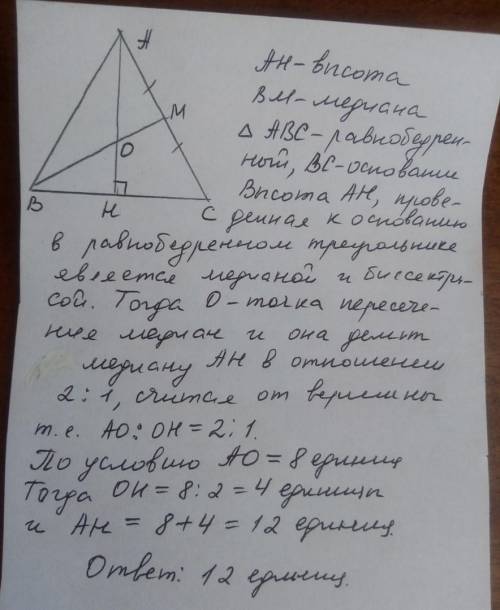 A
M
O
B
H
C
AH - высота
BM - медиана
△ ABC - равнобедрен-
ный, BC - основание
Высота AH, прове-
денная к основанию
в равнобедренном треугольнике
является медианой и биссектри-
сой. Тогда O - точка пересече-
ния медиан и она делит
медиану AH в отношении
2:1, считая от вершины
т.е. AO:OH = 2:1.
По условию AO = 8 единиц
Тогда OH = 8:2 = 4 единицы
и AH = 8+4 = 12 единиц.
Ответ: 12 единиц.